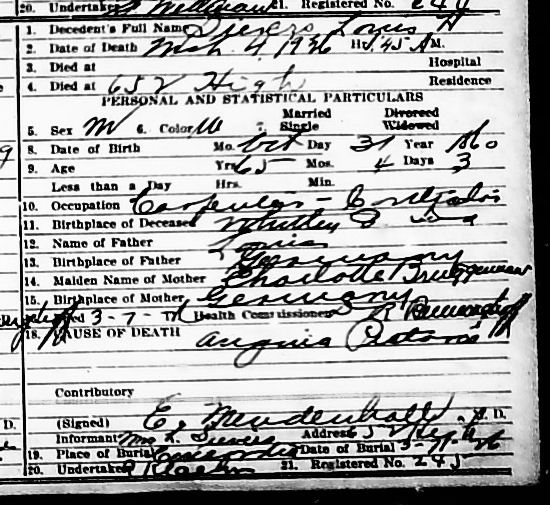 20. Undertaker 21. Registered No. 244
1. Decedent's Full Name Sievers Louis H
2. Date of Death Mch 4, 1926 Hr 1.45 A M.
3. Died at Hospital
4. Died at 652 High Residence
PERSONAL AND STATISTICAL PARTICULARS
5. Sex M 6. Color W 7. Married Single Divorced Widowed
8. Date of Birth Mo. Oct Day 31 Year 1860
9. Age Yrs 65 Mos. 4 Days 3
Less than a Day Hrs. Min.
10. Occupation Carpenter - Contractor
11. Birthplace of Deceased Whitley Ind
12. Name of Father Louis
13. Birthplace of Father Germany
14. Maiden Name of Mother Charlotte
15. Birthplace of Mother Germany
3-7- Health Commissioner
18. CAUSE OF DEATH Angina Pectoris
Contributory
(Signed) E. Mendenhall M. D.
Informant Mrs L. Sievers Address 652 High
19. Place of Burial Concordia Date of Burial 3-7-26
20. Undertaker 21. Registered No. 245